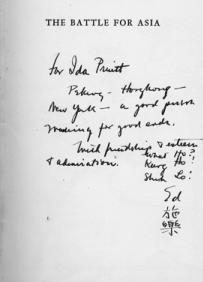 THE BATTLE FOR ASIA
for Ida Pruitt
Peking - Hongkong -
New York - a good person
working for good ends.
With friendship & esteem
& admiration.
What Ho?!
Kung Ho!
Shih Lo!
Ed
施
樂